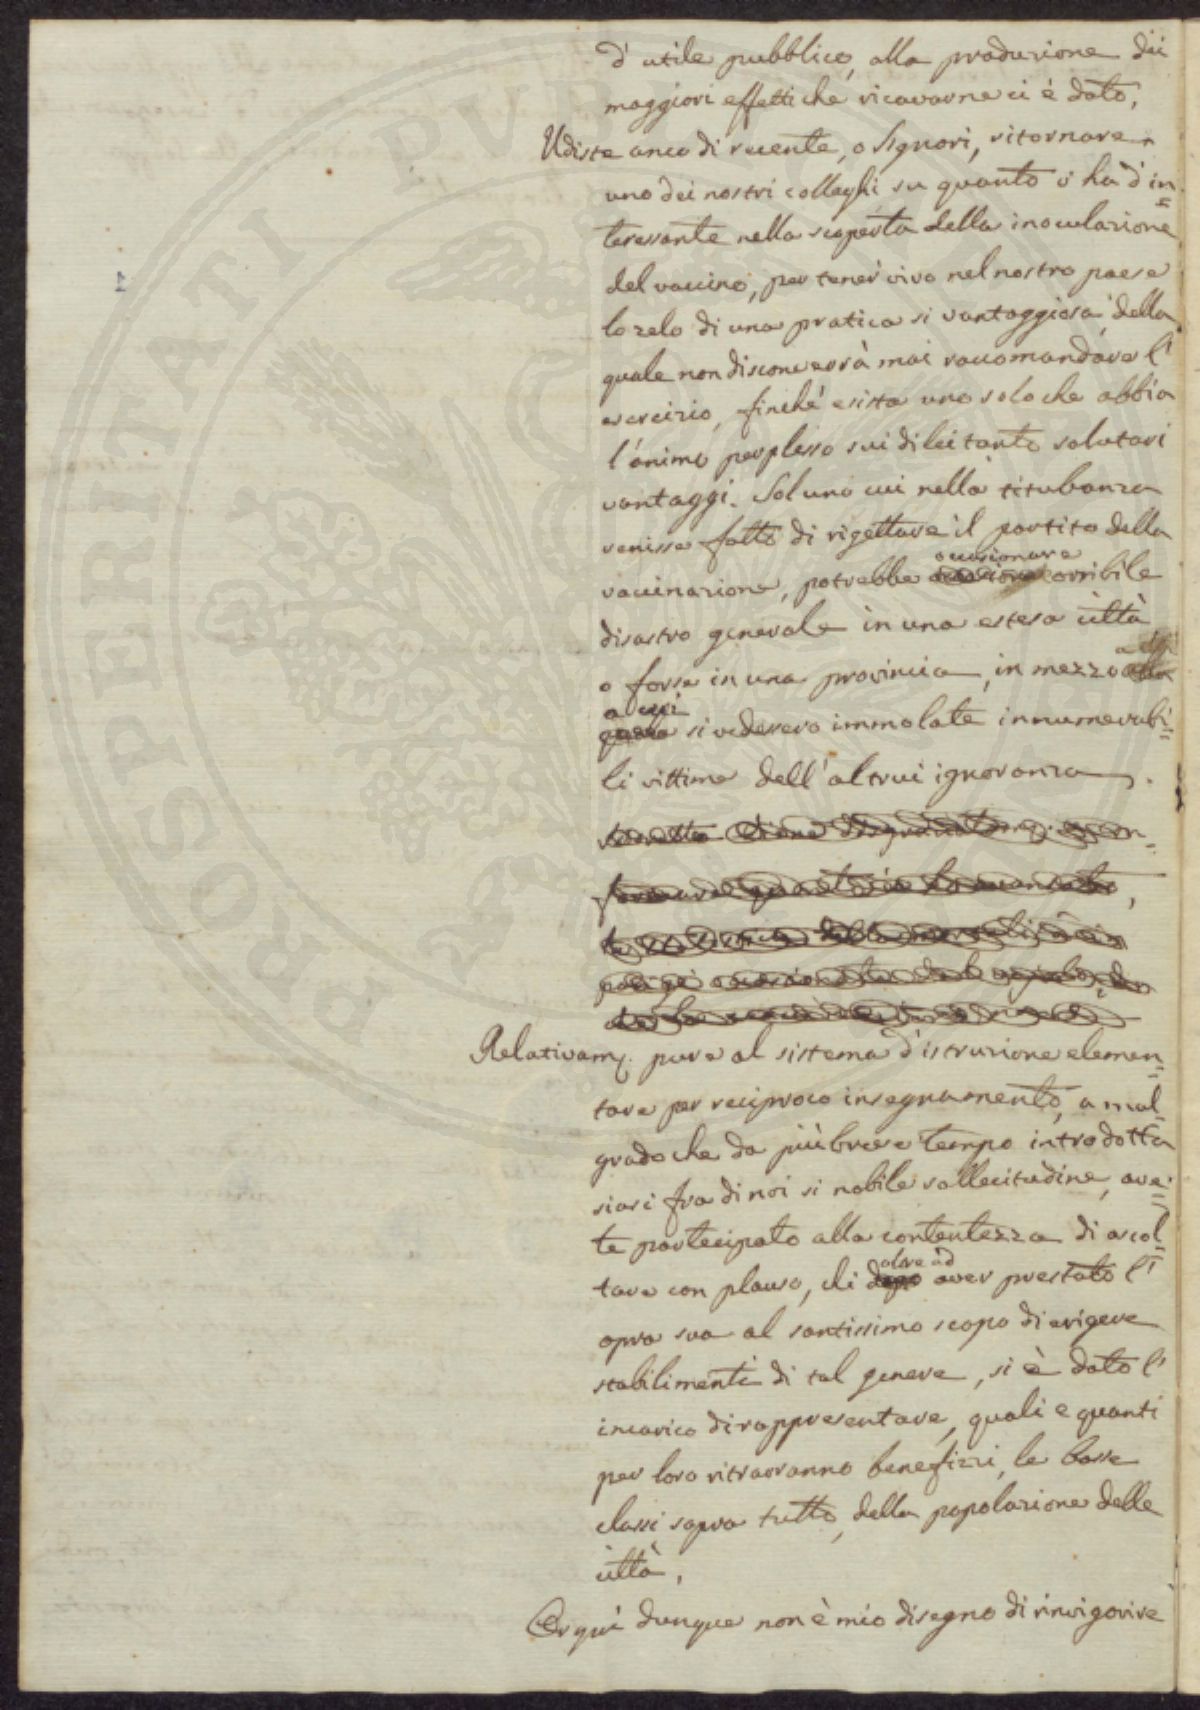 d'utile pubblico, alla produzione dei
maggiori effetti che ricavarne ci è dato.
Udiste anco di recente, o Signori, ritornare
uno dei nostri colleghi su quanto v'ha d'in=
teressante nella scoperta della inoculazione
del vaccino, per tener vivo nel nostro paese
lo zelo di una pratica si vantaggiosa, della
quale non disconverrà mai raccomandare l'
esercizio, finchè esista uno solo che abbia
l'animo perplesso sui di lei tanto salutari
vantaggi. Sol uno cui nella titubanza
venisse fatto di rigettare il partito della
vaccinazione, potrebbe occasionare orribile
disastro generale in una estesa città
o forse in una provincia, in mezzo
a cui si vedessero immolate innumerabi=
li vittime dell'altrui ignoranza.
Relativam. pure al sistema d'istruzione elemen=
tare per reciproco insegnamento, a mal=
grado che da più breve tempo introdotta
siasi fra di noi si nobile sollecitudine, ave=
te partecipato alla contentezza di ascol=
tare con plauso, chi dopo oltre ad aver prestato l'
opra sua al santissimo scopo di erigere
stabilimenti di tal genere, si è dato l'
incarico di rappresentare, quali e quanti
per loro ritrarranno benefizzi, le basse
classi sopra tutto, della popolazione delle
città.
Or quì dunque non è mio disegno di rinvigorire
PROSPERITATI PVB
1